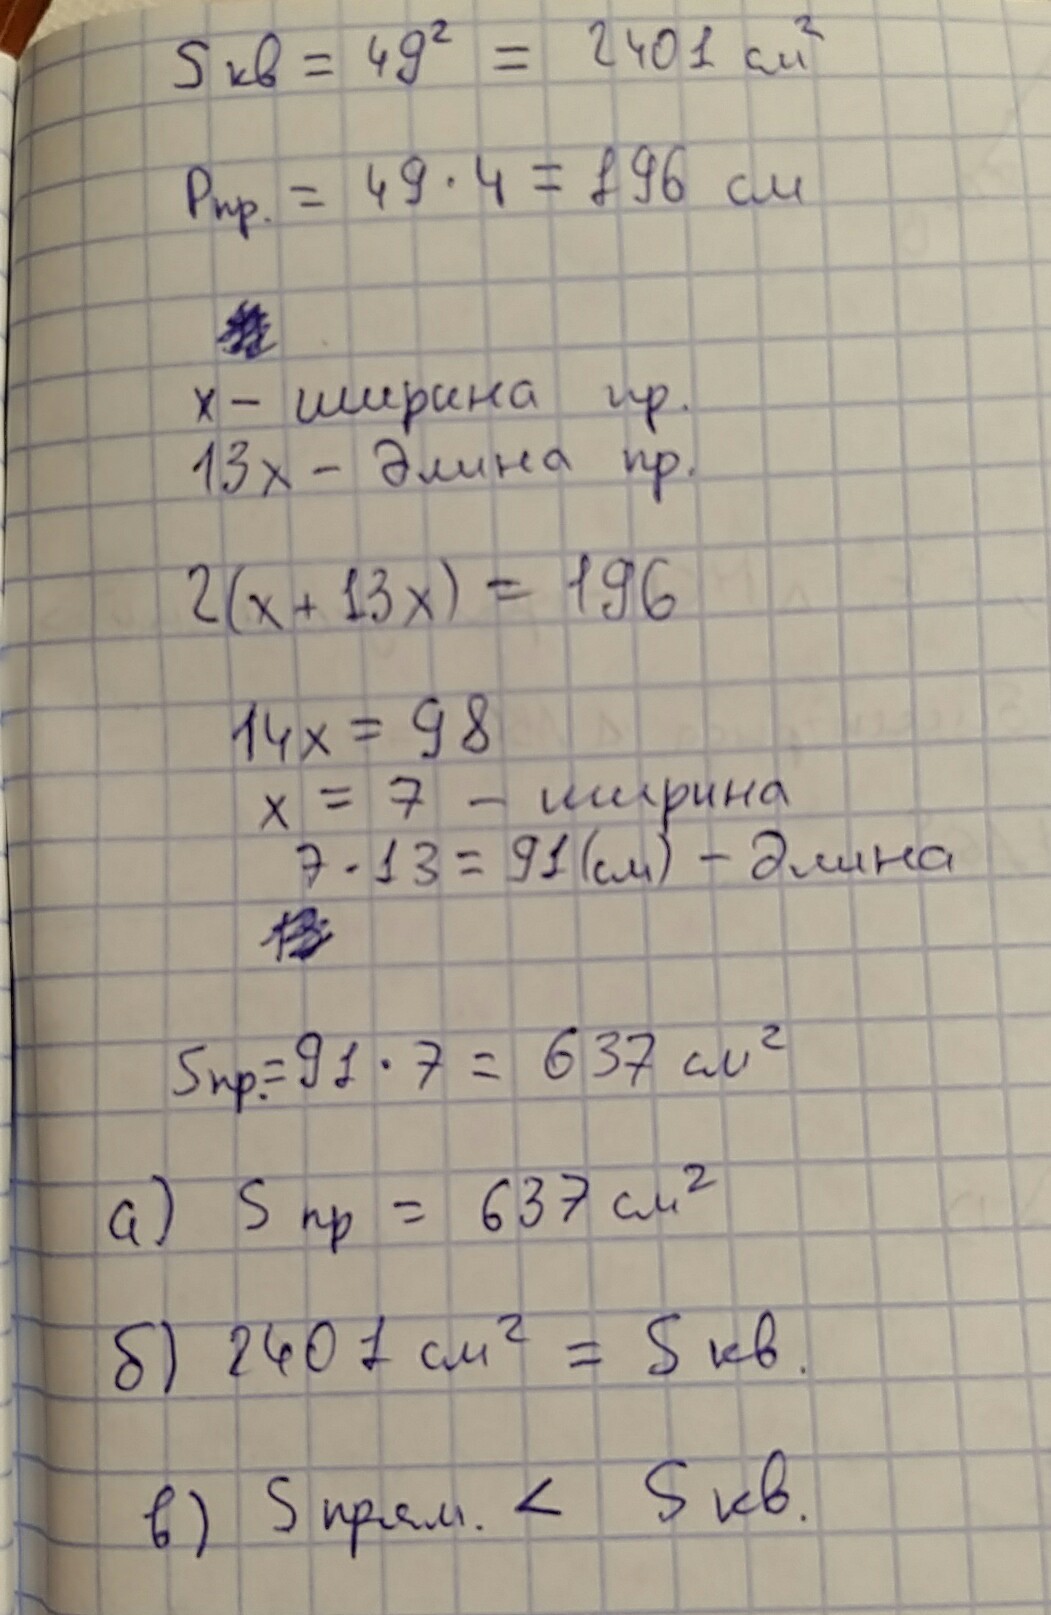 S кв = 49² = 2401 см²
Pпр. = 49 · 4 = 196 см
x – ширина пр.
13x – длина пр.
2(x + 13x) = 196
14x = 98
x = 7 – ширина
7 · 13 = 91 (см) – длина
Sпр. = 91 · 7 = 637 см²
а) S пр = 637 см²
б) 2401 см² = S кв.
в) S прям. < S кв.